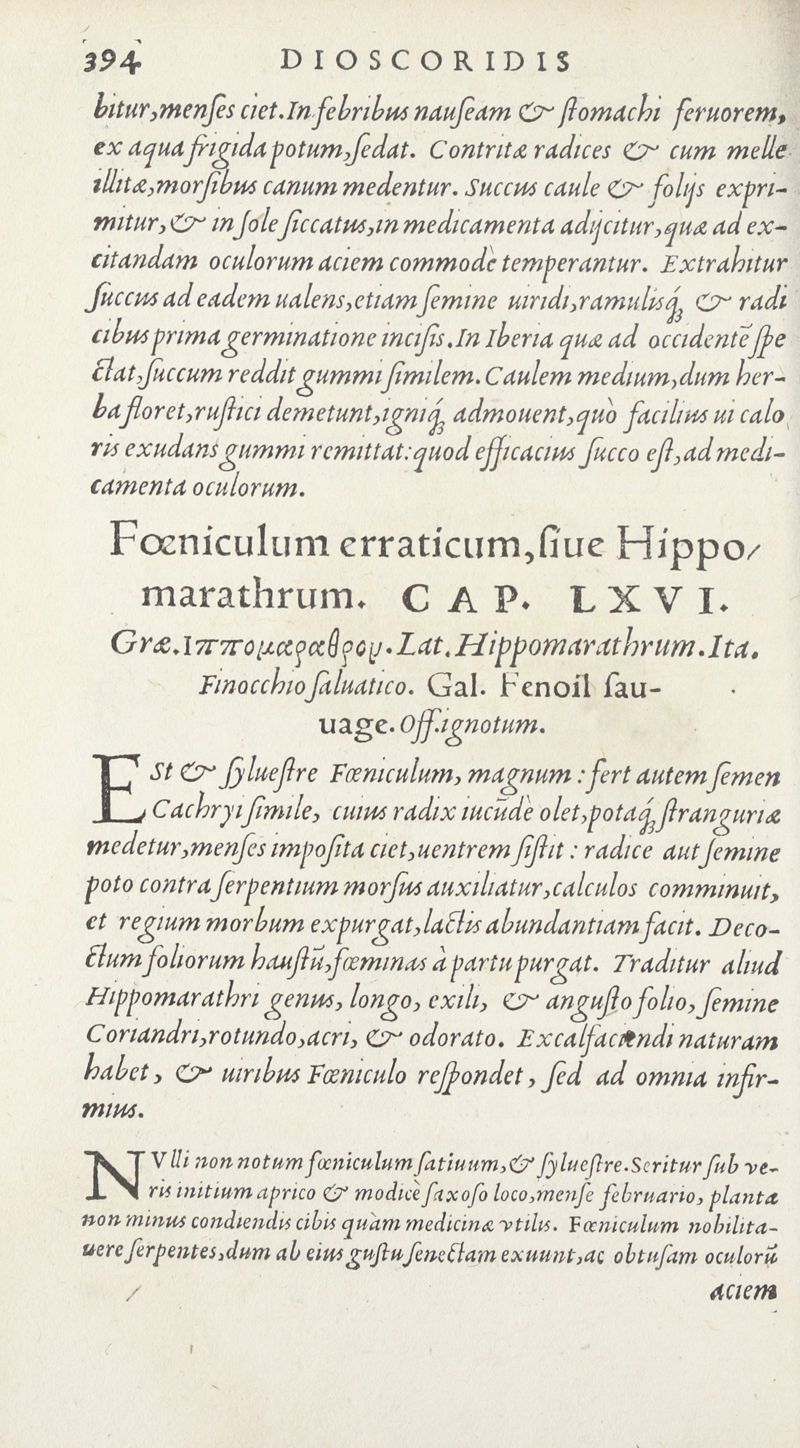 394 DIOSCORIDIS
bitur,menſes ciet.In febribus nauſeam & ſtomachi feruorem,
ex aqua frigida potum,ſedat. Contritæ radices & cum melle
illitæ,morſibus canum medentur. Succus caule & folijs expri-
mitur,& in ſole ſiccatus,in medicamenta adijcitur,quæ ad ex-
citandam oculorum aciem commodè temperantur. Extrahitur
ſuccus ad eadem ualens,etiam ſemine uiridi,ramulisq́; & radi
cibus prima germinatione inciſis.In Iberia quæ ad occidentē ſpe
ctat,ſuccum reddit gummi ſimilem.Caulem medium,dum her-
ba floret,ruſtici demetunt,igniq́; admouent,quò facilius ui calo
ris exudans gummi remittat:quod efficacius ſucco eſt,ad medi-
camenta oculorum.
Fœniculum erraticum,ſiue Hippo-
marathrum. CAP. LXVI.
Græ.Ιππομαραθρον.Lat.Hippomarathrum.Ita.
Finocchio ſaluatico. Gal. Fenoil ſau-
uage.Off.ignotum.
ESt & ſylueſtre Fœniculum, magnum : fert autem ſemen
Cachryi ſimile, cuius radix iucūdè olet,potaq́; ſtranguriæ
medetur,menſes impoſita ciet,uentrem ſiſtit : radice aut ſemine
poto contra ſerpentium morſus auxiliatur,calculos comminuit,
et regium morbum expurgat,lactis abundantiam facit. Deco-
ctum foliorum hauſtū,fœminas à partu purgat. Traditur aliud
Hippomarathri genus, longo, exili, & anguſto folio, ſemine
Coriandri,rotundo,acri, & odorato. Excalfaciendi naturam
habet, & uiribus Fœniculo reſpondet, ſed ad omnia infir-
mius.
NVlli non notum fœniculum ſatiuum,& ſylueſtre.Seritur ſub ve-
ris initium aprico & modicè ſaxoſo loco,menſe februario, planta
non minus condiendis cibis quàm medicinæ vtilis. Fœniculum nobilita-
uere ſerpentes,dum ab eius guſtu ſenectam exuunt,ac obtuſam oculorū
aciem